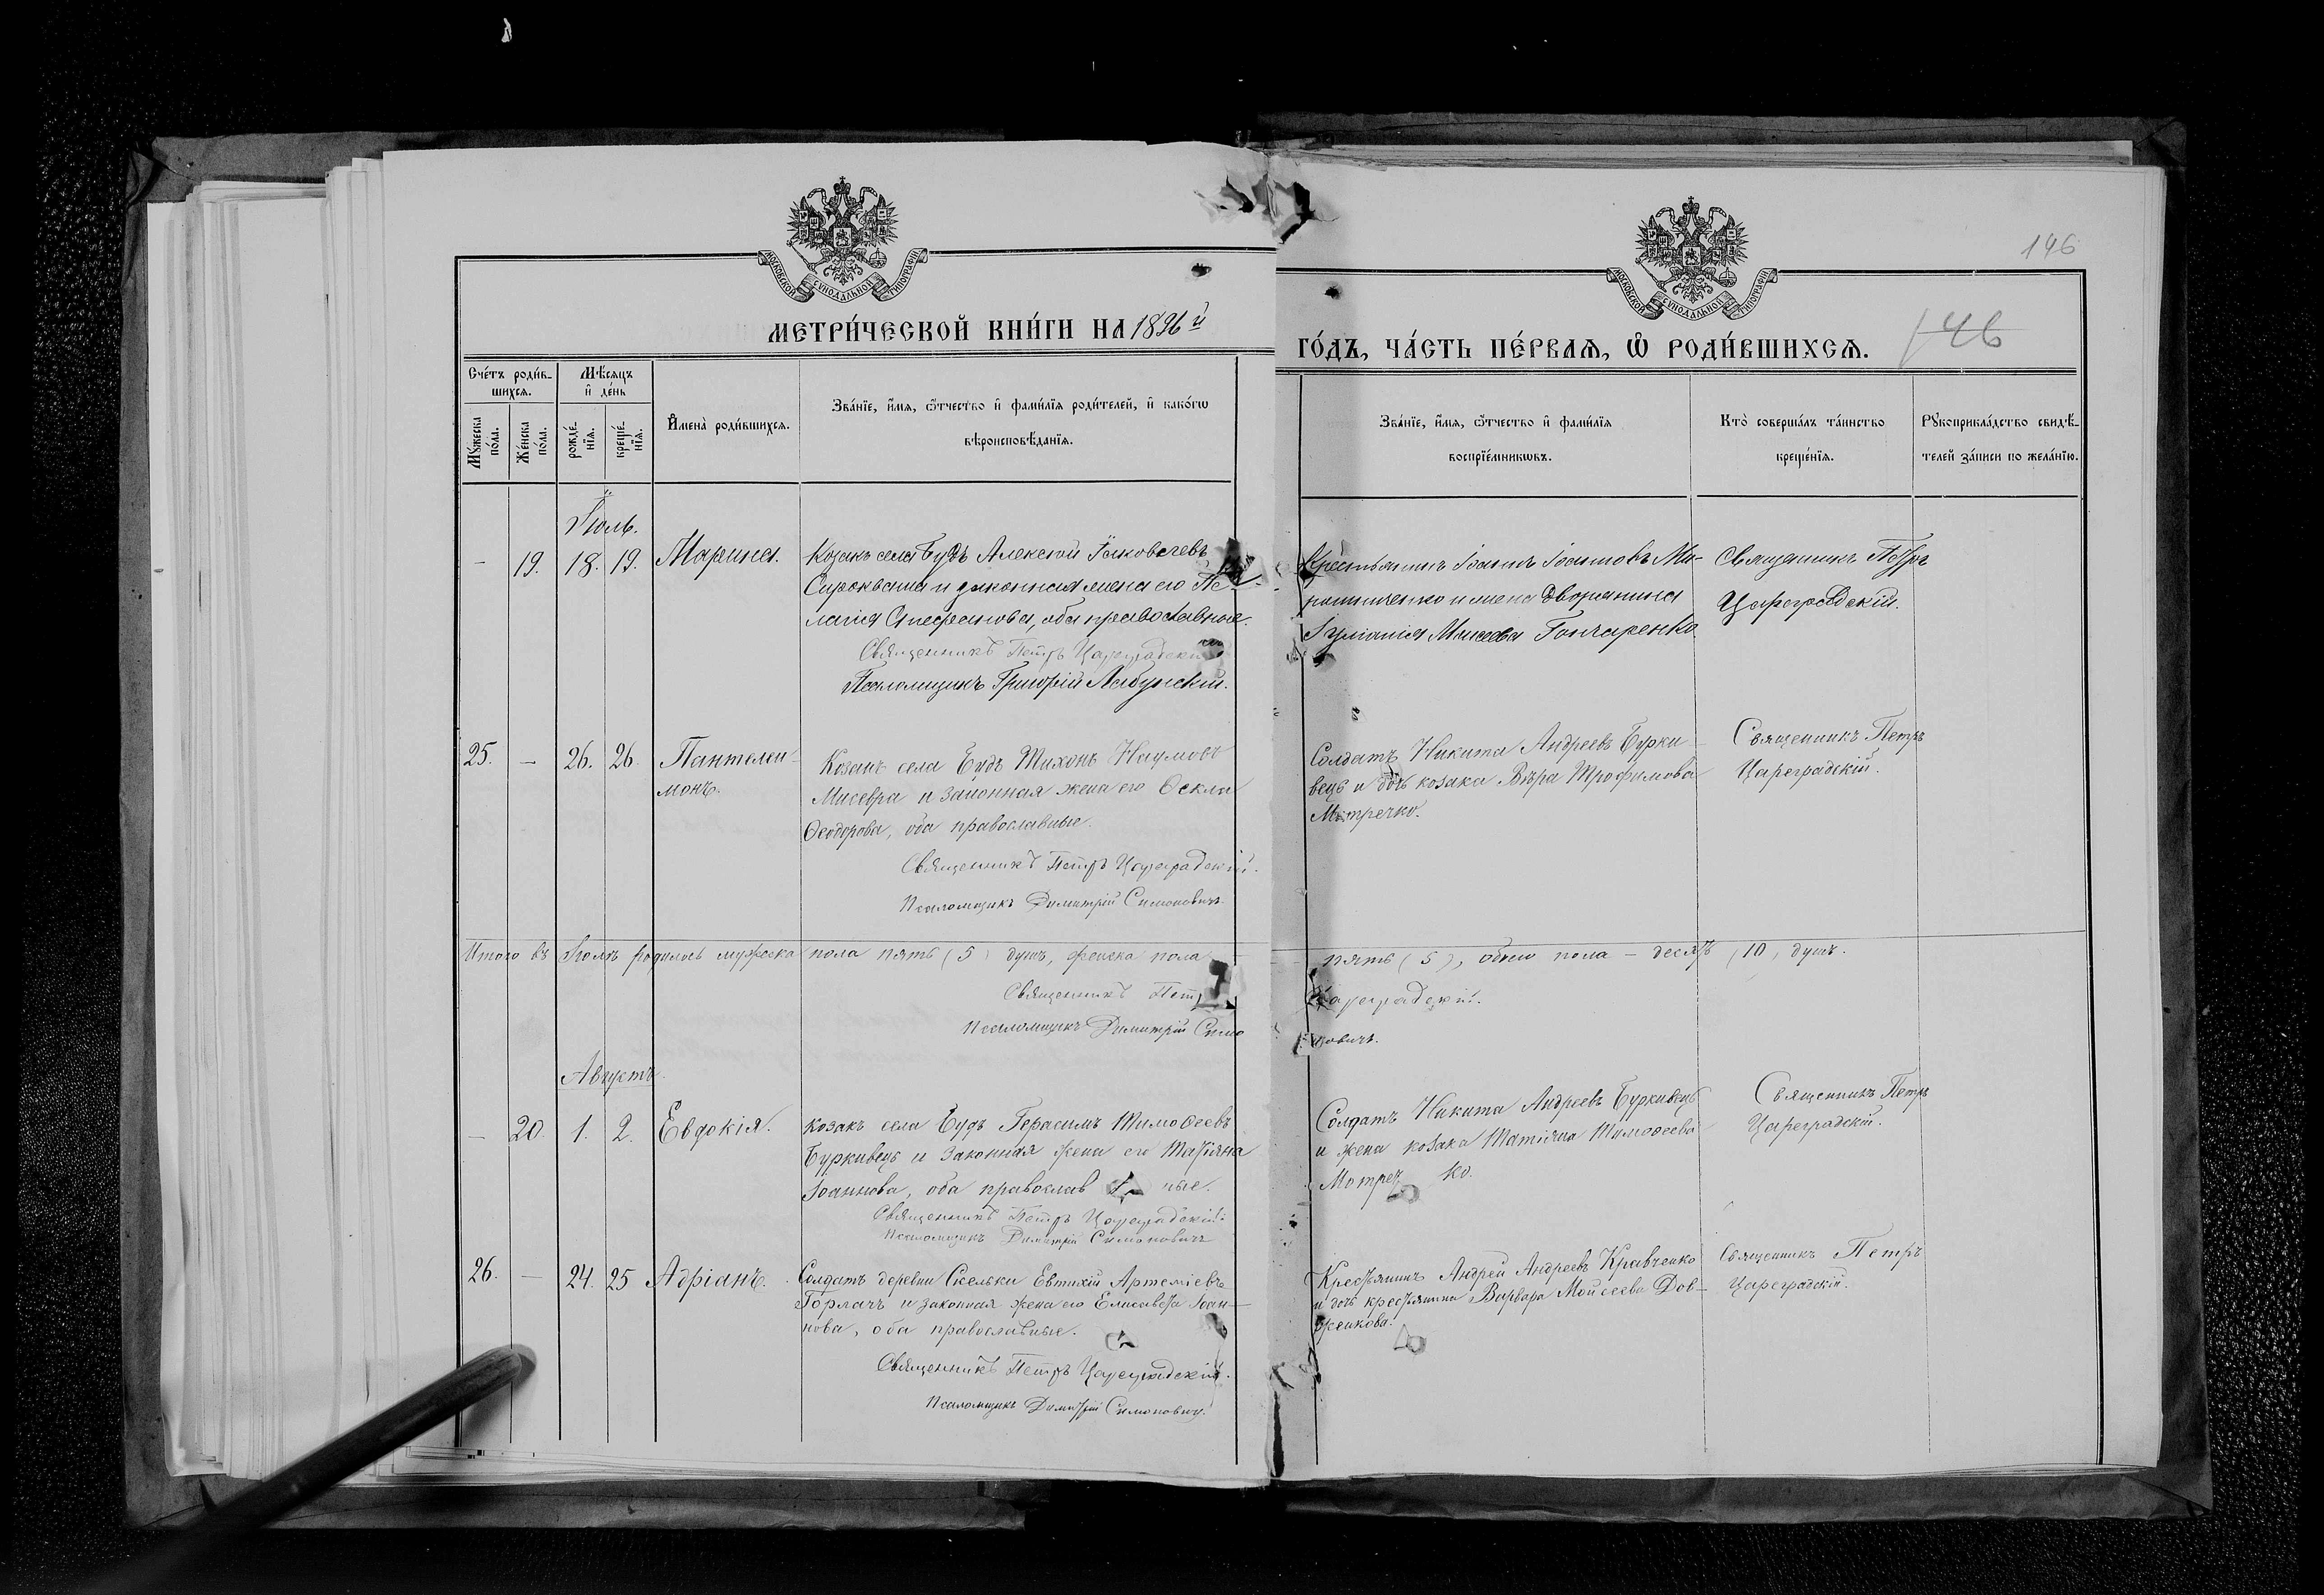 146
МОСКОВСКОЙ СѴНОДАЛЬНОЙ ТИПОГРАФІИ
МОСКОВСКОЙ СѴНОДАЛЬНОЙ ТИПОГРАФІИ
МЕТРИ́ЧЕСКОЙ КНИ́ГИ НА 1896 й
ГО́ДЪ, ЧА́СТЬ ПЕ́РВАѦ, Ѡ РОДИ́ВШИХСѦ.
146
Сче́тъ роди́в-
шихсѧ.
Мѣ́сѧцъ
и҆ де́нь
Мꙋ́жеска
по́ла.
Же́нска
по́ла.
рожде́-
нїѧ.
креще́-
нїѧ.
И҆мена̀ роди́вшихсѧ.
Зва́нїе, и҆́мѧ, ѻ҆́тчество и҆ фами́лїѧ роди́телей, и҆ како́гѡ
вѣроисповѣ́данїѧ.
Зва́нїе, и҆́мѧ, ѻ҆́тчество и҆ фами́лїѧ
воспрїе́мникѡвъ.
Кто̀ соверша́лъ та́инство
креще́нїѧ.
Рꙋкоприкла́дство свидѣ́-
телей за́писи по жела́нїю.
Іюль.
— 19. 18. 19. Марина.
Козакъ села Будъ Алексѣй Іаковлевъ
Сыроквана и законная жена его Пе-
лагія Стефанова, оба православные.
Священникъ Петръ Цареградскій
Псаломщикъ Григорій Лабунскій.
Крестьянинъ Іоаннъ Іоанновъ Ми-
рошниченко и жена дворянина
Іуліанія Моисеева Гончаренко
Священникъ Петръ
Цареградскій.
25. — 26. 26. Пантелеи-
монъ.
Козакъ села Будъ Тихонъ Наумовъ
Мисевра и законная жена его Ѳекла
Ѳеодорова, оба православные.
Священникъ Петръ Цареградскій.
Псаломщикъ Димитрій Симоновичъ.
Солдатъ Никита Андреевъ Бурки-
вецъ и дочь козака Вѣра Трофимова
Мотречко.
Священникъ Петръ
Цареградскій.
Итого въ Іюлѣ родилось мужеска пола пять (5) душъ, женска пола
— пять (5), обоего пола — десять (10) душъ.
Священникъ Петръ
Цареградскій.
Псаломщикъ Димитрій Симо
новичъ.
Августъ.
— 20. 1. 2. Евдокія.
Козакъ села Будъ Герасимъ Тимоѳеевъ
Буркивецъ и законная жена его Татіяна
Іоаннова, оба православ ные.
Священникъ Петръ Цареградскій.
Псаломщикъ Димитрій Симоновичъ
Солдатъ Никита Андреевъ Буркивецъ
и жена козака Татіяна Тимоѳеева
Мотреч ко.
Священникъ Петръ
Цареградскій.
26. — 24. 25 Адріанъ.
Солдатъ деревни Скельки Евтихій Артеміевъ
Горлачъ и законная жена его Елисавета Іоан-
нова, оба православные.
Священникъ Петръ Цареградскій.
Псаломщикъ Димитрій Симоновичъ.
Крестьянинъ Андрей Андреевъ Кравченко
и дочь крестьянина Варвара Мойсеева Дов-
женкова.
Священникъ Петръ
Цареградскій.